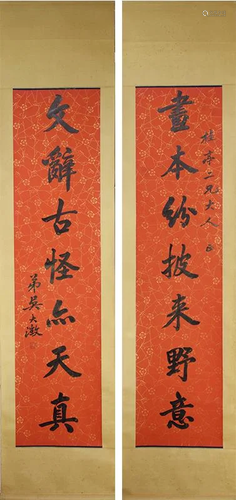 畫本紛披来野意
桂亭二兄大人
文辭古怪亦天真
弟吴大澂